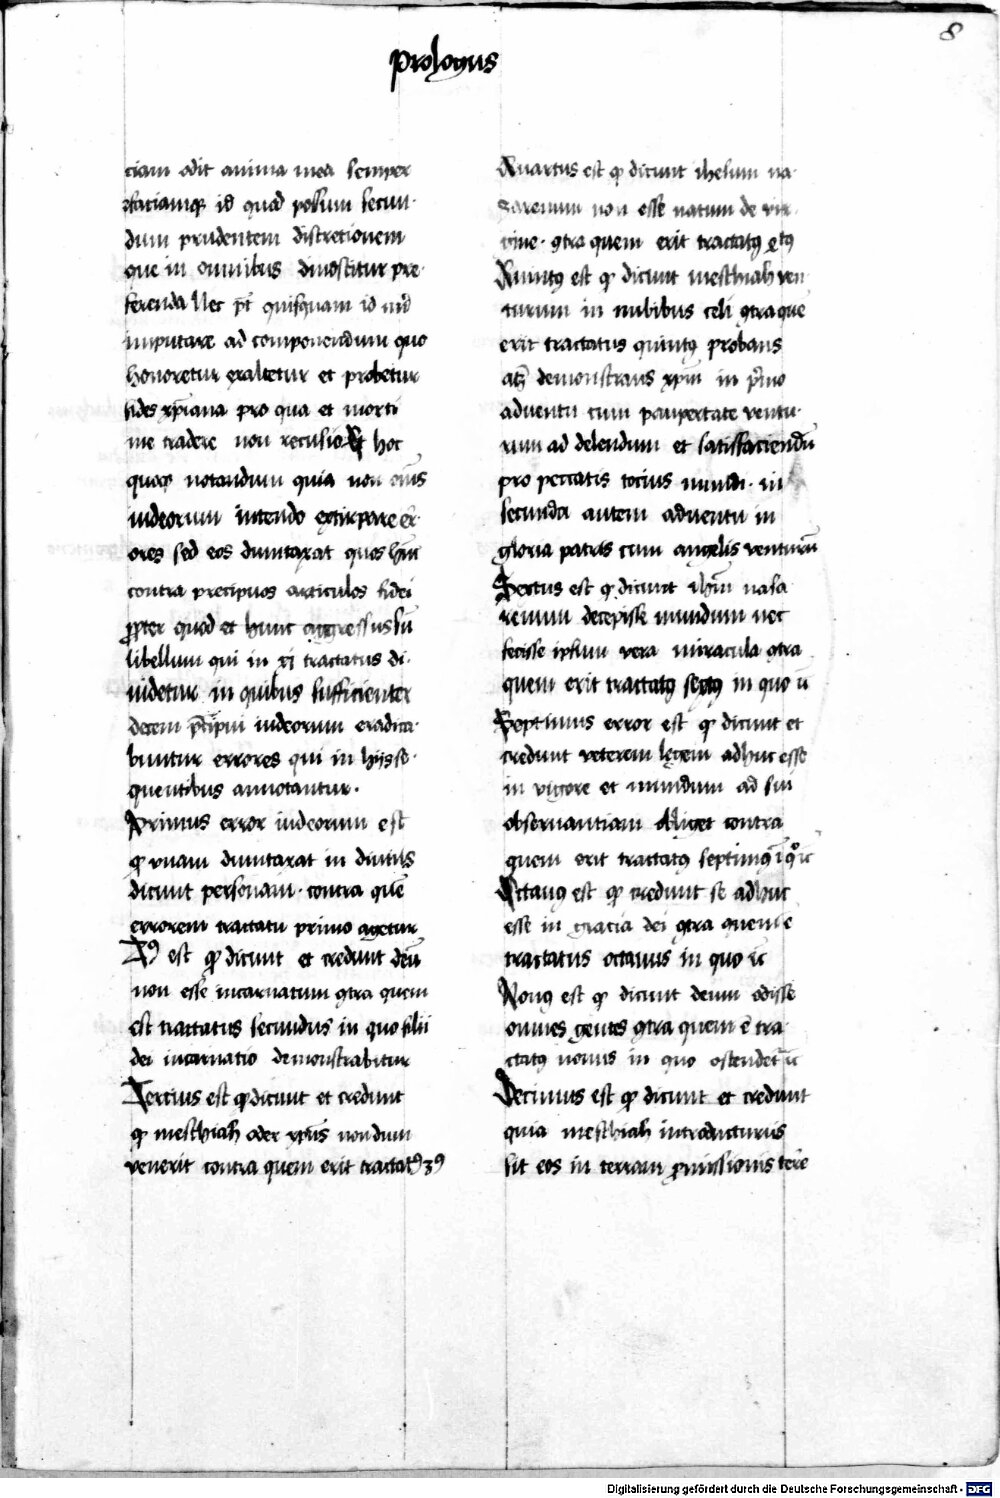 Prologus
8
ciam odit anima mea semper
efaciamꝗ id quod possum secun-
dum prudentem discretionem
que in omnibus dinoscitur pre-
ferenda Nec pt̄ quisquam id mi͛
imputare ad componendum quo
honoretur exaltetur et probetur
fides xp̄iana pro qua et morti
me tradere non recusio Et hoc
quoqꝫ notandum quia non om̄s
iudeorum intendo extirpare er-
ores sed eos dumtaxat quos hn̄t
contra precipuos articulos fidei
ꝓpter quod et hunc aggressus su͞
libellum qui in xj tractatus di-
uidetur in quibus sufficienter
decem p̄cipui iudeorum eradica-
buntur errores qui in hijs se-
quentibus annotantur.
Primus error iudeorum est
ꝙ vnam dumtaxat in diuinis
dicunt personam. contra que͞
errorem tractatu primo agetur
2ꝰ est ꝙ dicunt et credunt deū
non esse incarnatum ꝯtra quem
est tractatus secundus in quo filii
dei incarnatio demonstrabitur
Tercius est ꝙ dicunt et credunt
ꝙ meschiah oder xp̄us nondum
venerit contra quem erit tractatꝰ 3ꝰ
Quartus est ꝙ dicunt ihesum na-
zarenum non esse natum de vir-
gine. ꝯtra quem erit tractatꝰ 4tꝰ
Quintꝰ est ꝙ dicunt meschiah ven
turum in nubibus celi ꝯtra que
erit tractatus quintꝰ probans
atqꝫ demonstrans xp̄m in p͛mo
aduentu cum paupertate ventu-
rum ad delendum et satisfaciendū
pro peccatis tocius mundi. in
secunda autem aduentu in
gloria patris cum angelis venturū
Sextus est ꝙ dicunt ihm̄ nasa
renum decepisse mundum nec
fecisse ipsum vera miracula ꝯtra
quem erit tractatꝰ sextꝰ in quo ī
Septimus error est ꝙ dicunt et
credunt veterem legem adhuc esse
in vigore et mundum ad sui
obseruantiam obliget contra
quem erit tractatꝰ septimꝰ ī qͦ īc̄
Octauꝰ est ꝙ credunt se adhuc
esse in gracia dei ꝯtra quem e͞
tractatus octauus in quo īc̄
Nonꝰ est ꝙ dicunt deum odisse
omnes gentes ꝯtra quem ē tra-
ctatꝰ nonus in quo ostendet͛ īc̄
Decimus est ꝙ dicunt et credunt
quia meschiah introducturus
sit eos in terram ꝓmissionis terre
Digitalisierung gefördert durch die Deutsche Forschungsgemeinschaft - DFG